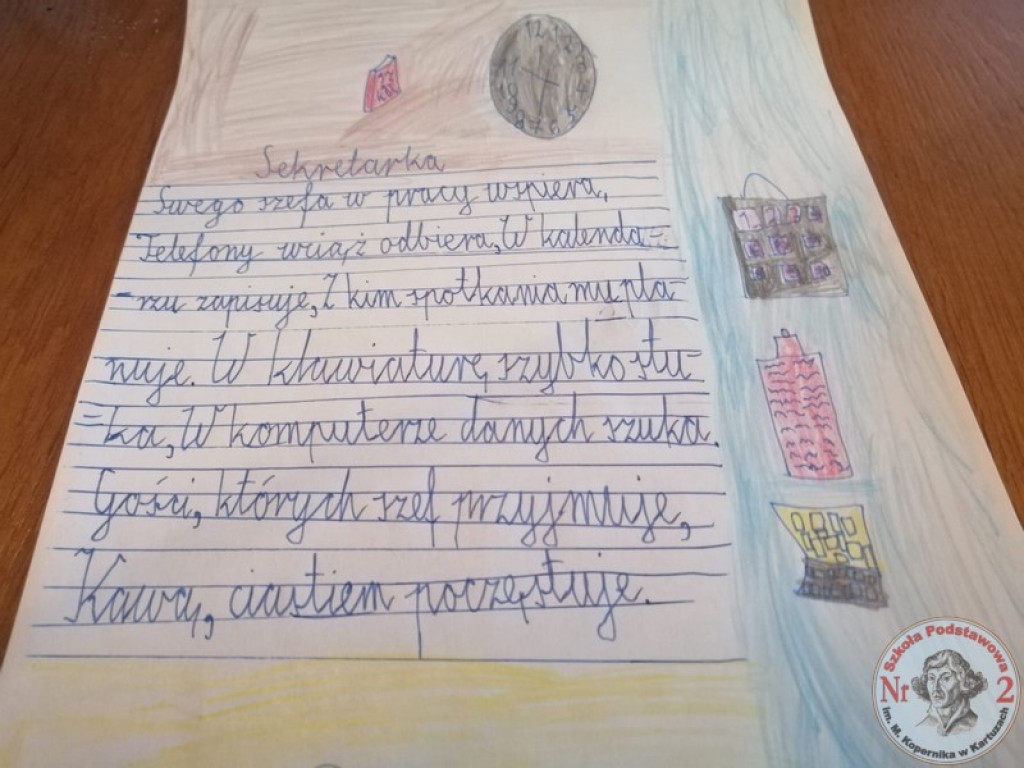 12 1 2 3 4 5 6 7 8 9
Sekretarka
Swego szefa w pracy wspiera,
Telefony wciąż odbiera, W kalenda=
-rzu zapisuje, Z kim spotkania mu pla-
nuje. W klawiaturę szybko stu-
=ka, W komputerze danych szuka.
Gości, których szef przyjmuje,
Kawą, ciastiem poczęstuje.
Szkoła Podstawowa
Nr 2
im. M. Kopernika w Kartuzach